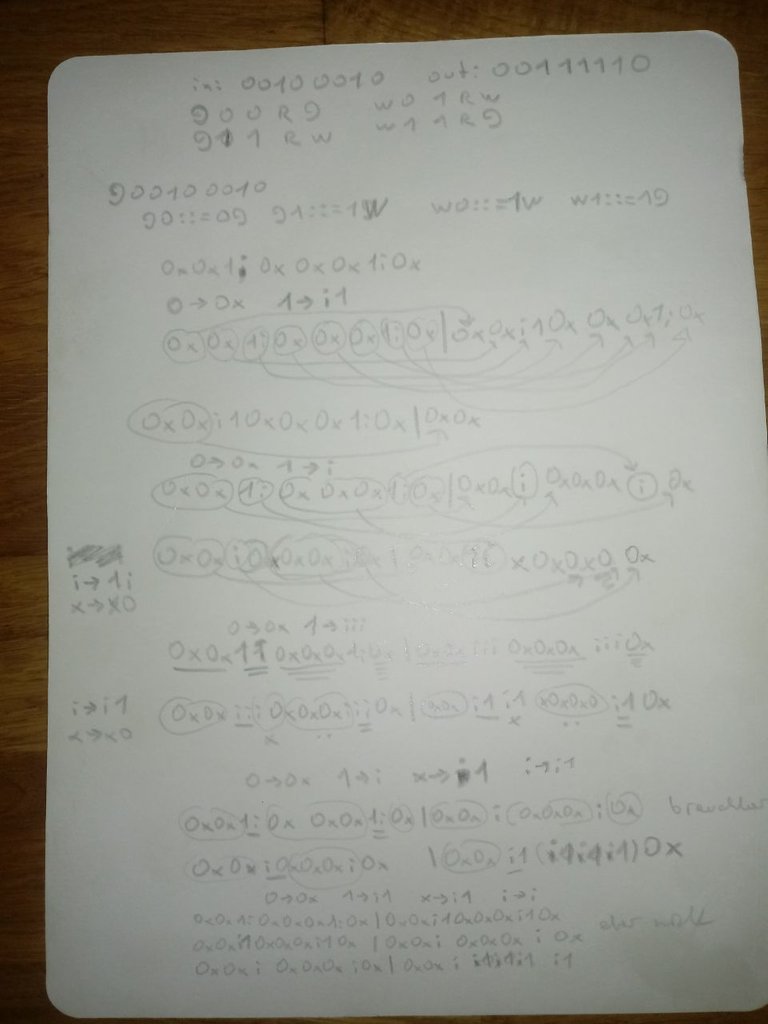 in: 00100010 out: 00111110
g 0 0 R g w 0 1 R w
g 1 1 R w w 1 1 R g
g00100010
g0::=0g g1::=1W w0::=1w w1::=1g
0x0x1i 0x 0x 0x 1i 0x
0→0x 1→i1
0x 0x 1i 0x 0x 0x 1i 0x | 0x 0x i1 0x 0x 0x1i 0x
0x 0x i 1 0x 0x 0x 1i 0x | 0x 0x
0→0x 1→i
0x 0x 1i 0x 0x 0x 1i 0x | 0x 0x i 0x0x0x i 0x
0x 0x i 0x 0x 0x i 0x | 0x 0x 1i x 0x 0x 0 0x
i→1i
x→x0
0→0x 1→iii
0x 0x 11 0x0x0x 1i 0x | 0x0x iii 0x0x0x iii 0x
i→i1
x→x0
0x0x iii 0x0x0x iii 0x | 0x0x i1 i1 x0x0x0 i1 0x
0→0x 1→i x→i1 i→i1
0x0x1i 0x 0x0x1i 0x | 0x0x i 0x0x0x i 0x
0x0x i 0x0x0x i 0x | 0x0x i1 (i1i1i1) 0x
0→0x 1→i1 x→i1 i→i
0x0x1i0x0x0x1i0x | 0x0x i1 0x0x0x i1 0x
0x0xi10x0x0xi10x | 0x0x i 0x0x0x i 0x
0x0x i 0x0x0x i0x | 0x0x i i1i1i1 i1